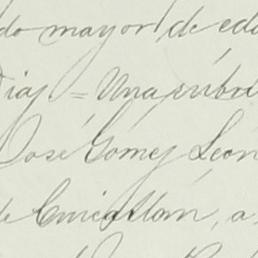 do mayor de eda
Diaz = Una rúbri
José Gómez León
de Cuicatlan, a